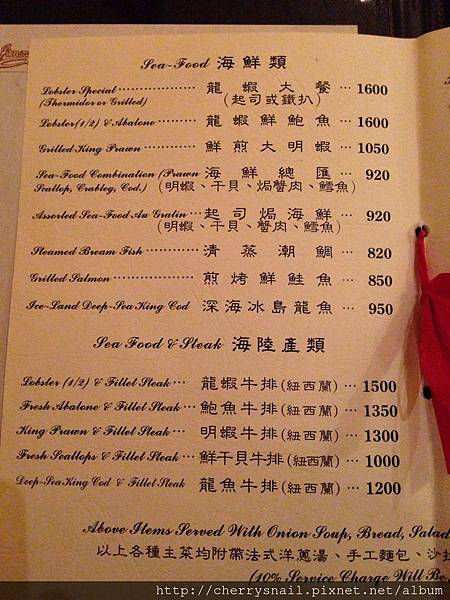 Sea-Food 海鮮類
Lobster Special 龍蝦大餐 1600
(Thermidor or Grilled) (起司或鐵扒)
Lobster(1/2) & Abalone 龍蝦鮮鮑魚 1600
Grilled King Prawn 鮮煎大明蝦 1050
Sea-Food Combination (Prawn 海鮮總匯 920
Scallop, Crableg, Cod.) (明蝦、干貝、焗蟹肉、鱈魚)
Assorted Sea-Food Au Gratin 起司焗海鮮 920
(明蝦、干貝、蟹肉、鱈魚)
Steamed Bream Fish 清蒸潮鯛 820
Grilled Salmon 煎烤鮮鮭魚 850
Ice-Land Deep-Sea King Cod 深海冰島龍魚 950
Sea Food & Steak 海陸產類
Lobster (1/2) & Fillet Steak 龍蝦牛排(紐西蘭) 1500
Fresh Abalone & Fillet Steak 鮑魚牛排(紐西蘭) 1350
King Prawn & Fillet Steak 明蝦牛排(紐西蘭) 1300
Fresh Scallops & Fillet Steak 鮮干貝牛排(紐西蘭) 1000
Deep-Sea King Cod & Fillet Steak 龍魚牛排(紐西蘭) 1200
Above Items Served With Onion Soup, Bread, Salad
以上各種主菜均附帶法式洋蔥湯、手工麵包、沙拉
(10% Service Charge Will Be
http://cherrysnail.pixnet.net/album